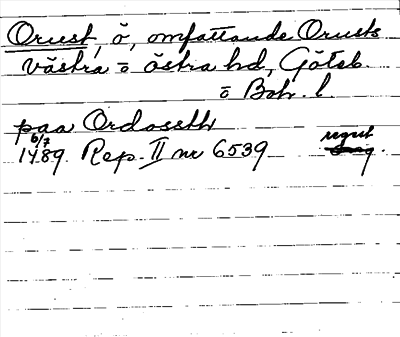 Orust, ö, omfattande Orusts
västra o östra hd, Göteb.
o Boh. l.
paa Ordosth
6/7
1489. Rep. II nr 6539 regest